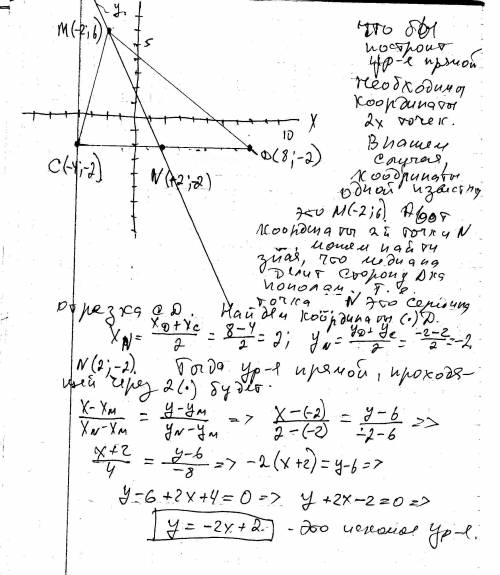 y
M(-2;6)
5
10
X
C(-4;-2)
N(+2;-2)
D(8;-2)
что бы
построит
ур-е прямой
необходимы
координаты
2х точек.
В нашем
случая,
координаты
одной известны
это M(-2;6). А вот
координаты ай точки N
можем найти
зная, что медиана
делит сторону Δка
пополам. Т. е.
точка N это середина
отрезка CD. Найдем координаты (·) D.
X_N = (X_D + X_C)/2 = (8-4)/2 = 2; y_N = (y_D + y_C)/2 = (-2-2)/2 = -2
N(2;-2). Тогда ур-е прямой, проходя-
щей через 2(·) будет:
(X-X_M)/(X_N-X_M) = (y-y_M)/(y_N-y_M) => (X-(-2))/(2-(-2)) = (y-6)/(-2-6) =>
(X+2)/4 = (y-6)/(-8) => -2(X+2)=y-6 =>
y-6+2X+4=0 => y+2X-2=0 =>
y=-2X+2. - это искомое ур-е.